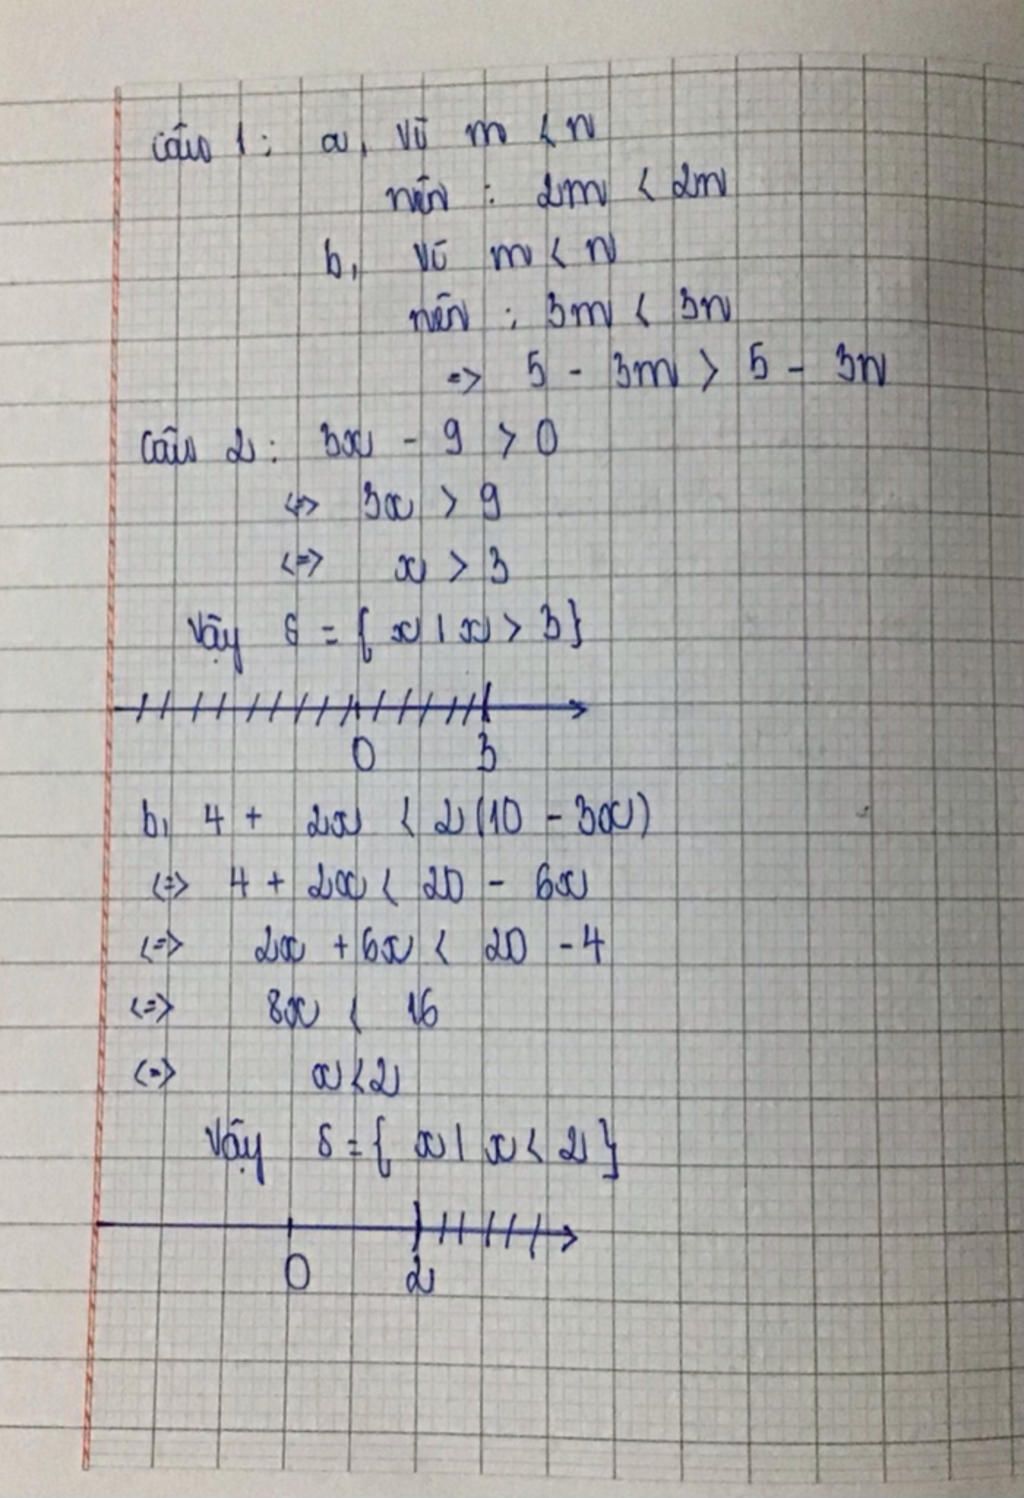 Câu 1: a, Vì m < n
nên : 2m < 2n
b, Vì m < n
nên : 3m < 3n
=> 5 - 3m > 5 - 3n
Câu 2: 3x - 9 > 0
<=> 3x > 9
<=> x > 3
Vậy S = { x | x > 3 }
0 3
b, 4 + 2x < 2(10 - 3x)
<=> 4 + 2x < 20 - 6x
<=> 2x + 6x < 20 - 4
<=> 8x < 16
<=> x < 2
Vậy S = { x | x < 2 }
0 2